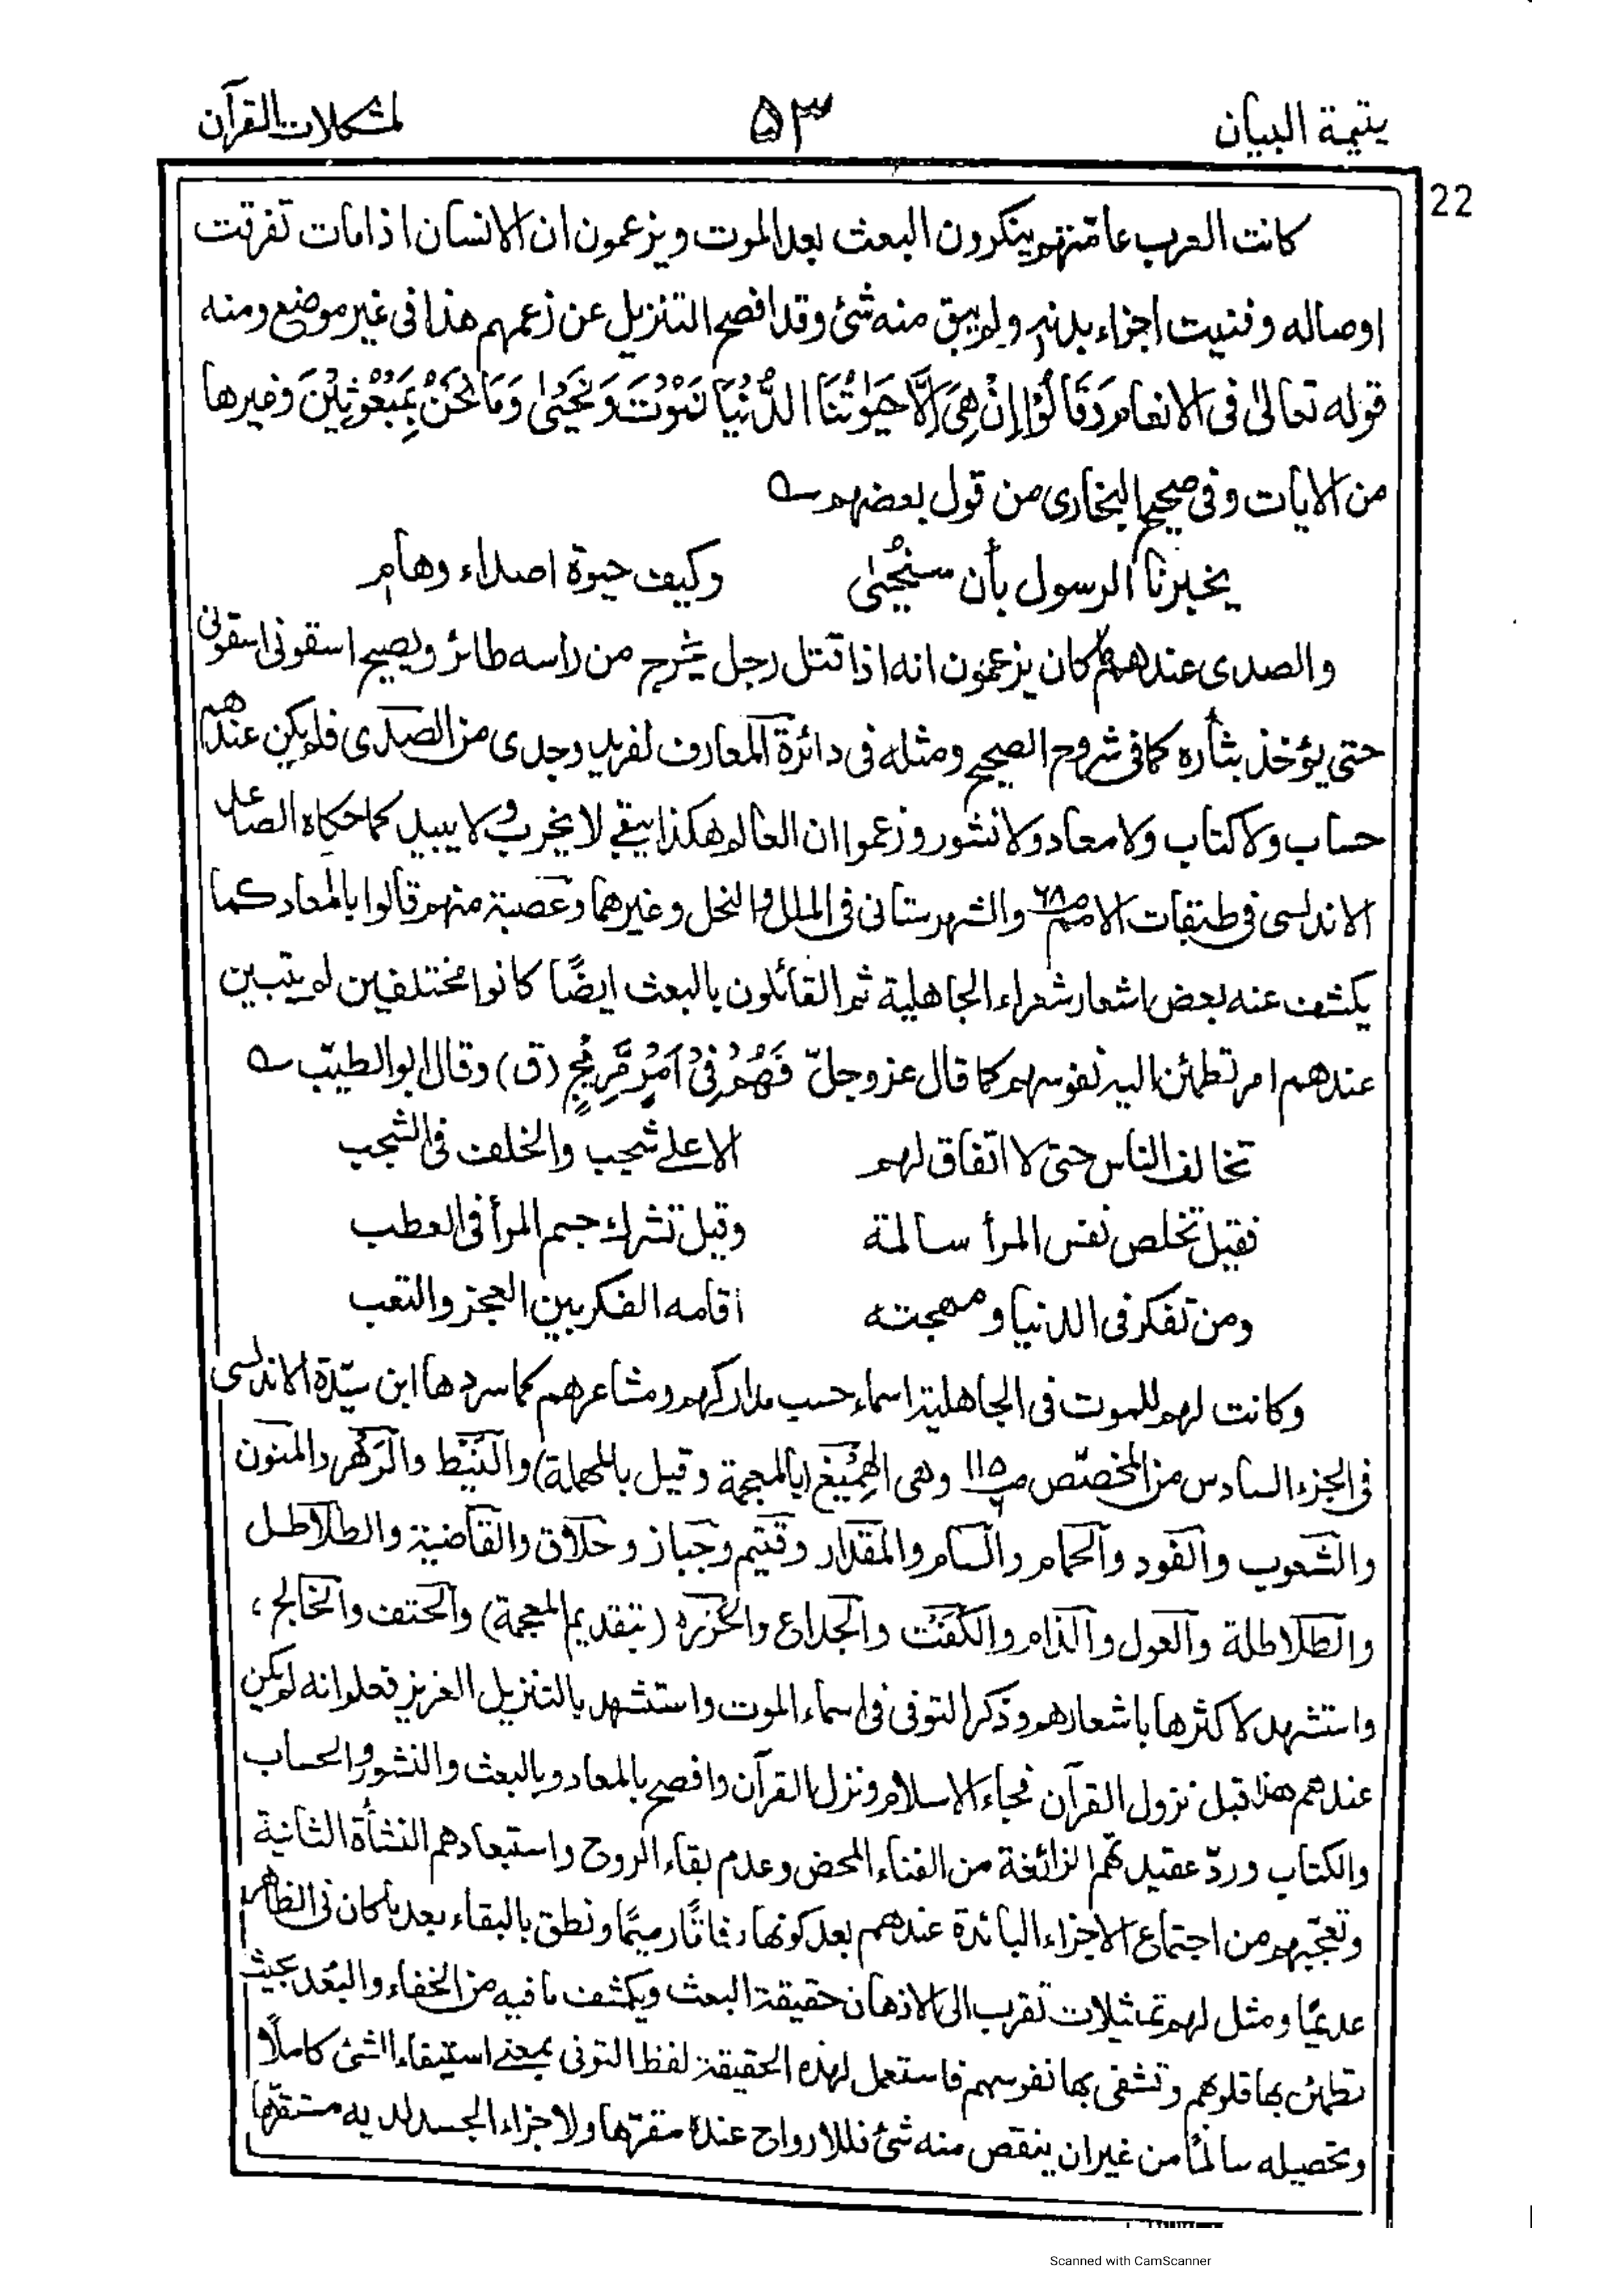 يتيمة البيان
۵۳
لمشكلات القرآن
22
كانت العرب عامّتهم ينكرون البعث بعد الموت ويزعمون ان الانسان اذا مات تفرقت
اوصاله وفنيت اجزاء بدنه ولم يبق منه شئ وقد افصح التنزيل عن زعمهم هذا فى غير موضع ومنه
قوله تعالىٰ فى الانعام وَقَالُوْا اِنْ هِىَ اِلَّا حَيٰوتُنَا الدُّنْيَا نَمُوْتُ وَنَحْيٰى وَمَا نَحْنُ بِمَبْعُوْثِيْنَ وغيرها
من الايات وفى صحيح البخارى من قول بعضهم ؎
يخبرنا الرسول بأن سنُحيٰى
وكيف حيوة اصداء وهام
والصدى عندهم ما كان يزعمون انه اذا قتل رجل يخرج من راسه طائر ويصيح اسقونى اسقونى
حتى يؤخذ بثأره كما فى شروح الصحيح ومثله فى دائرة المعارف لفريد وجدى من الصدى فلم يكن عندهم
حساب ولا كتاب ولا معاد ولا نشور وزعموا ان العالم هكذا يبقے لا يخرب ولا يبيد كما حكاه الصاعد
الاندلسى فى طبقات الامم ص٦٨ والشهرستانى فى الملل والنحل وغيرهما وعصبة منهم قالوا بالمعاد كما
يكشف عنه بعض اشعار شعراء الجاهلية ثم القائلون بالبعث ايضًا كانوا مختلفين لم يتبين
عندهم امر تطمئن اليه نفوسهم كما قال عز وجلّ فَهُمْ فِىْ اَمْرٍ مَّرِيْجٍ (ق) وقال ابو الطيّب ؎
تخالف الناس حتى لا اتفاق لهم
الا علے شجب والخلف فى الشجب
فقيل تخلص نفس المرأ سالمة
وقيل تشرك جسم المرأ فى العطب
ومن تفكر فى الدنيا ومهجته
اقامه الفكر بين العجز والتعب
وكانت لهم للموت فى الجاهلية اسماء حسب مداركهم ومشاعرهم كما سردها ابن سيّدة الاندلسى
فى الجزء السادس من المخصّص ص١١٥ وهى الهِمْيَغ (بالمعجمة وقيل بالمهملة) والنَّيْط والرَّمْد والمنون
والشعوب والفود والحمام والسام والمقدار وقتيم وجباز وحلاق والقاضية والطلاطل
والطلاطلة والعول والذام والكَفْت والجداع والخزره (بتقديم المعجمة) والحتف والخالج،
واستشهد لاكثرها باشعارهم وذكر التوفى فى اسماء الموت واستشهد بالتنزيل العزيز فعلم انه لم يكن
عندهم هذا قبل نزول القرآن فجاء الاسلام ونزل القرآن وافصح بالمعاد وبالبعث والنشور والحساب
والكتاب وردّ عقيدتهم الزائغة من الفناء المحض وعدم بقاء الروح واستبعادهم النشأة الثانية
وتعجّبهم من اجتماع الاجزاء البائدة عندهم بعد كونها رفاتًا رميمًا ونطق بالبقاء بعد ما كان فى الظاهر
عديمًا ومثل لهم تمثيلات تقرب الى الاذهان حقيقة البعث ويكشف ما فيه من الخفاء والبعد بحيث
تطمئن بها قلوبهم وتشفى بها نفوسهم فاستعمل لهذه الحقيقة لفظ التوفى بمعنے استيفاء الشئ كاملًا
وتحصيله سالمًا من غير ان ينقص منه شئ فللارواح عنده مقرّها ولاجزاء الجسد لديه مستقرّها
Scanned with CamScanner